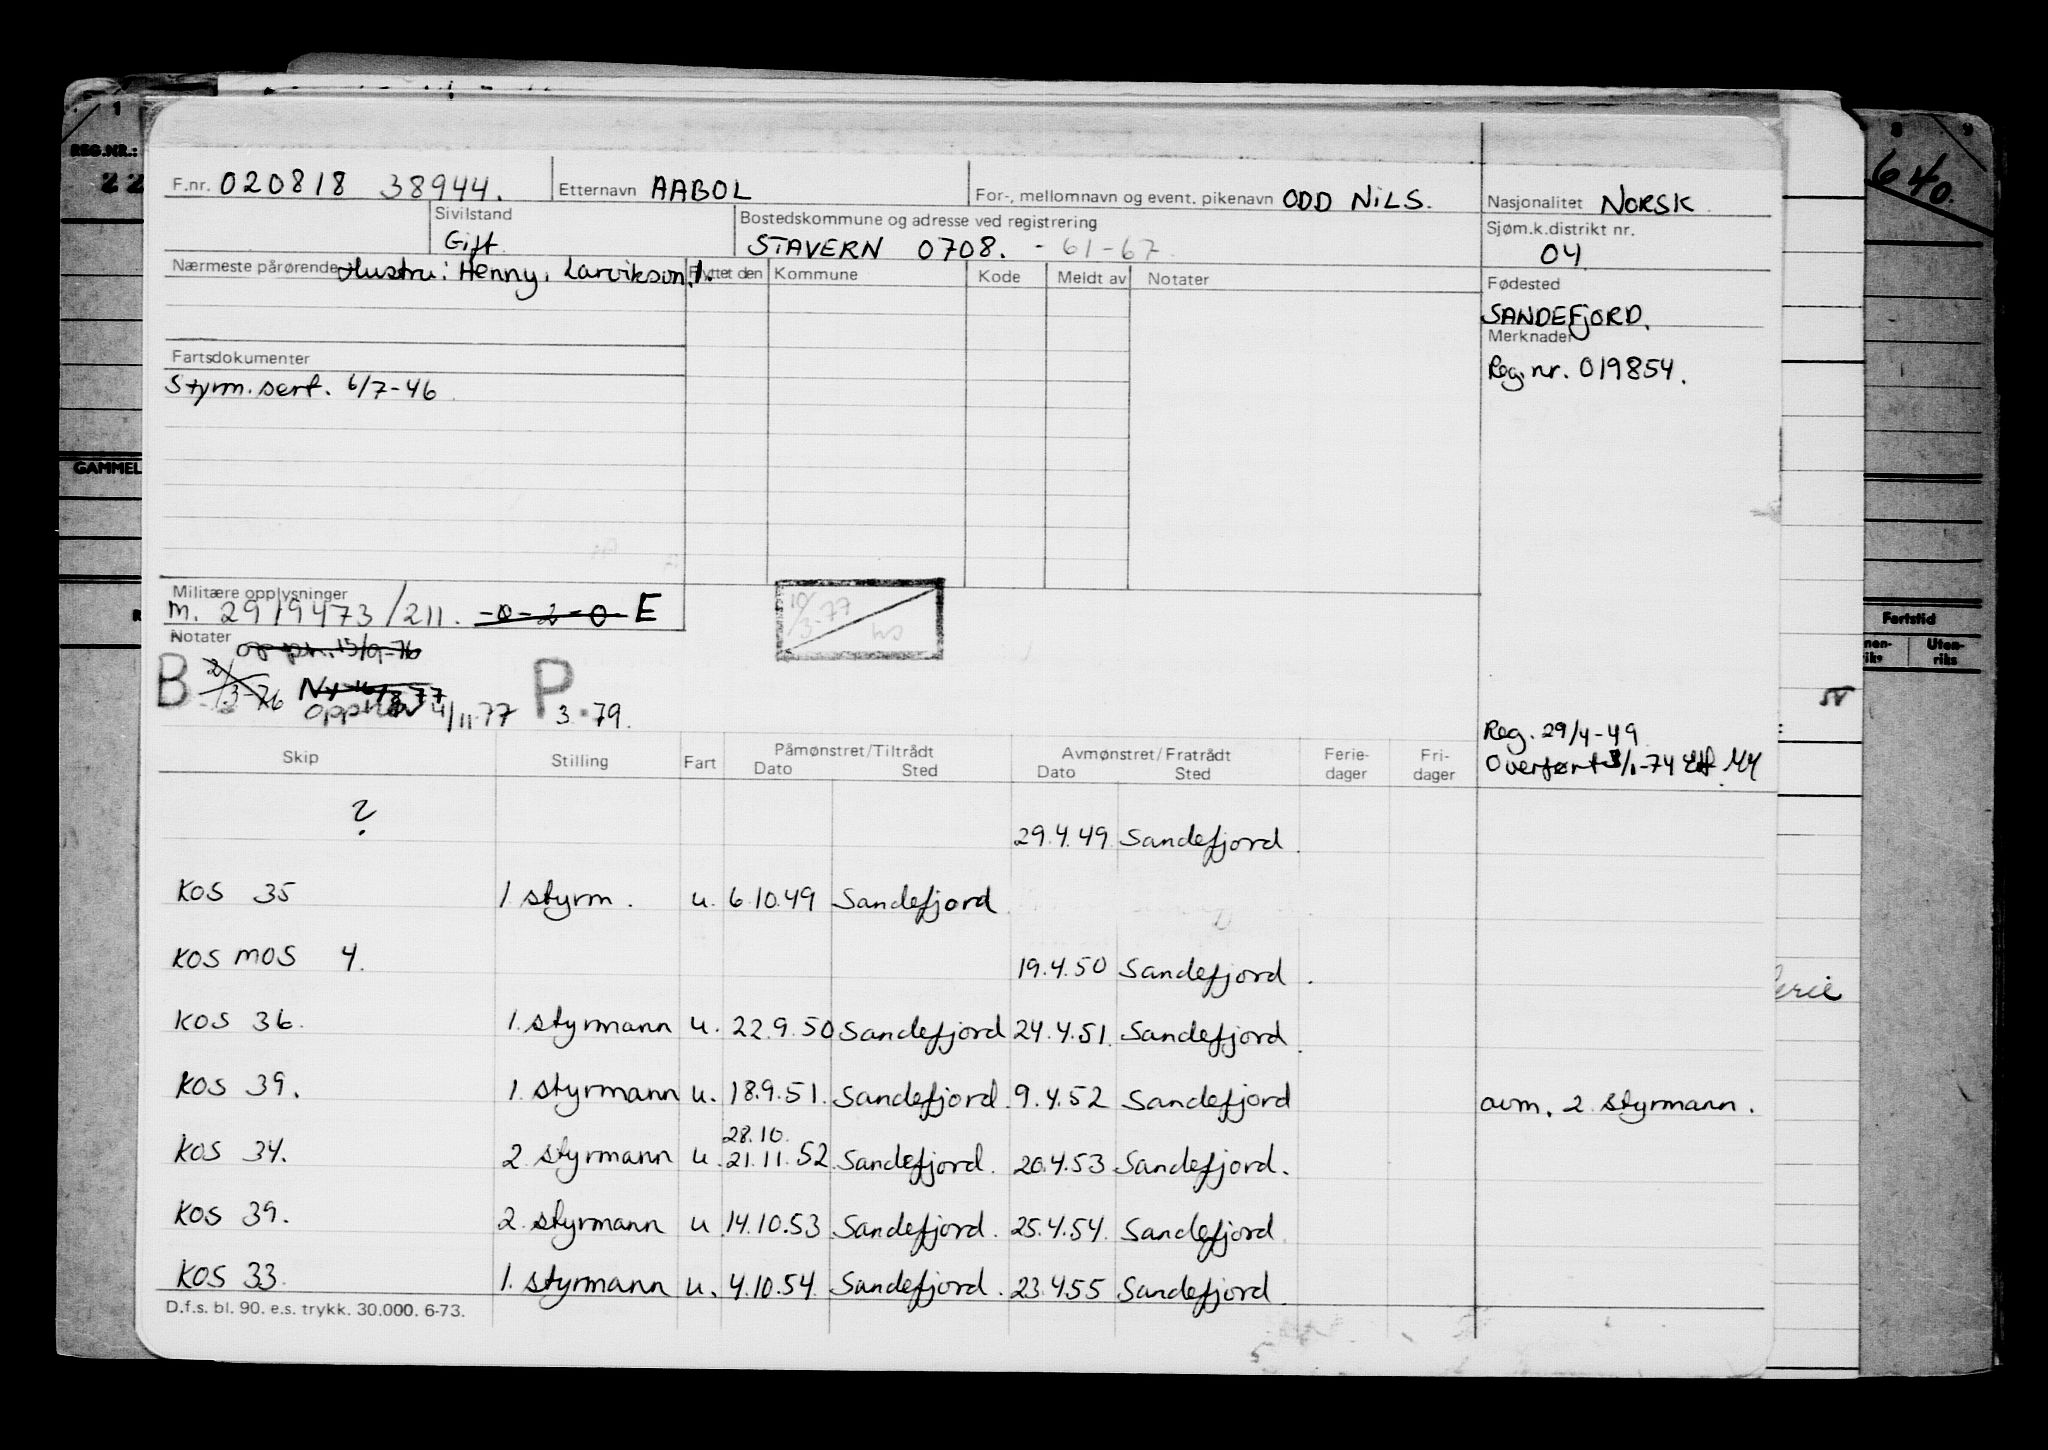 1
REG.NR.:
22
GAMMEL
8 9
640.
Fartstid
Uten-
riks
F.nr. 020818 38944.
Etternavn AABOL
For-, mellomnavn og event. pikenavn ODD NILS.
Nasjonalitet NORSK
Sivilstand
Gift.
Bostedskommune og adresse ved registrering
STAVERN 0708. - 61-67
Sjøm.k.distrikt nr.
04
Nærmeste pårørende Hustru: Henny, Larviksvn. 1.
Flyttet den Kommune Kode Meldt av Notater
Fødested
SANDEFJORD.
Merknader
Reg.nr. 019854.
Fartsdokumenter
Styrm.sert. 6/7-46
Militære opplysninger
m. 2919473/211. -0-2-0- E
10/3-77
Notater
opph. 15/9-76
B 2/3-76
4/11.77
P 3.79.
Reg. 29/4-49
Overført 3/1-74
Skip Stilling Fart Påmønstret/Tiltrådt Dato Sted Avmønstret/Fratrådt Dato Sted Ferie-dager Fri-dager
? 29.4.49 Sandefjord.
KOS 35 1 styrm. u. 6.10.49 Sandefjord
KOSMOS 4. 19.4.50 Sandefjord.
KOS 36. 1. styrmann u. 22.9.50 Sandefjord 24.4.51. Sandefjord.
KOS 39. 1. styrmann u. 18.9.51. Sandefjord. 9.4.52 Sandefjord avm. 2. styrmann.
28.10.
KOS 34. 2 styrmann u. 21.11.52 Sandefjord. 20.4.53 Sandefjord.
KOS 39. 2. styrmann u. 14.10.53 Sandefjord. 25.4.54. Sandefjord
KOS 33. 1. styrmann u. 4.10.54. Sandefjord. 23.4.55 Sandefjord.
D.f.s. bl. 90. e.s. trykk. 30.000. 6-73.